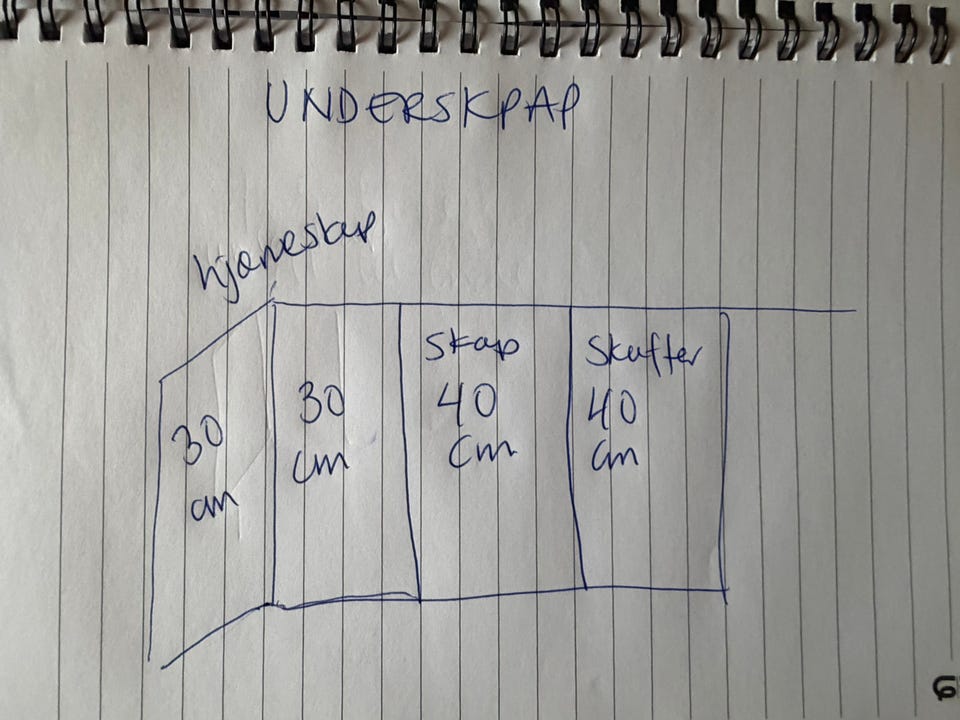 UNDERSKPAP
hjørneskap
30
cm
30
cm
Skap
40
cm
Skuffer
40
cm